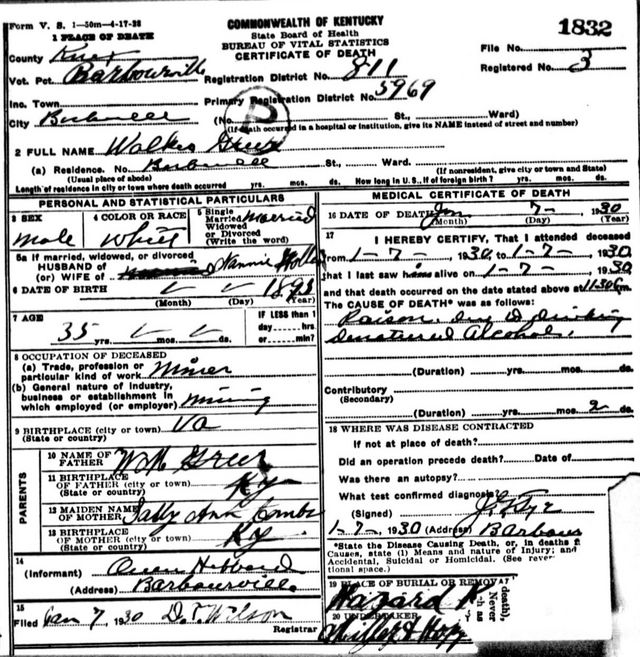 Form V. S. 1—50m—4-17-28
COMMONWEALTH OF KENTUCKY
State Board of Health
BUREAU OF VITAL STATISTICS
CERTIFICATE OF DEATH
1832
1 PLACE OF DEATH
County Knox
File No.
Vot. Pct. Barbourville
Registration District No. 811
Registered No. 3
Inc. Town
Primary Registration District No. 5969
City
(No. St., Ward)
(If death occurred in a hospital or institution, give its NAME instead of street and number)
2 FULL NAME Walker Greer
(a) Residence. No. St., Ward.
(Usual place of abode) (If nonresident, give city or town and State)
Length of residence in city or town where death occurred yrs. mos. ds. How long in U.S., if of foreign birth? yrs. mos. ds.
PERSONAL AND STATISTICAL PARTICULARS
3 SEX
male
4 COLOR OR RACE
White
5 Single
Married
Widowed
or Divorced
(Write the word)
married
5a If married, widowed, or divorced
HUSBAND of
(or) WIFE of Nannie
6 DATE OF BIRTH
(Month) (Day) (Year)
7 AGE
35 yrs. mos. ds.
IF LESS than 1
day hrs.
or min?
8 OCCUPATION OF DECEASED
(a) Trade, profession or
particular kind of work Miner
(b) General nature of industry,
business or establishment in
which employed (or employer) mining
9 BIRTHPLACE (city or town) Va
(State or country)
PARENTS
10 NAME OF
FATHER W.M Greer
11 BIRTHPLACE
OF FATHER (city or town) Ky
(State or country)
12 MAIDEN NAME
OF MOTHER Sally Ann Combs
13 BIRTHPLACE
OF MOTHER (city or town) Ky
(State or country)
14
(Informant) Owen Hibbard
(Address) Barbourville
15
Filed Jan 7, 1930 D.T. Wilson
Registrar
MEDICAL CERTIFICATE OF DEATH
16 DATE OF DEATH Jan 7- 1930
(Month) (Day) (Year)
17
I HEREBY CERTIFY, That I attended deceased
from 1-7- 1930 to 1-7- 1930
that I last saw him alive on 1-7- 1930
and that death occurred on the date stated above at 11:30 m.
The CAUSE OF DEATH* was as follows:
Poison drinking
Denatured Alcohol.
(Duration) yrs. mos. ds.
Contributory
(Secondary)
(Duration) yrs. mos. 2 ds.
18 WHERE WAS DISEASE CONTRACTED
If not at place of death?
Did an operation precede death? Date of
Was there an autopsy?
What test confirmed diagnosis?
(Signed)
1-7-, 1930 (Address) Barbour
*State the Disease Causing Death, or, in deaths f
Causes, state (1) Means and nature of Injury; and
Accidental, Suicidal or Homicidal. (See rever
tional space.)
19 PLACE OF BURIAL OR REMOVAL
Hazard K
20 UNDERTAKER
death),
Never
ch as